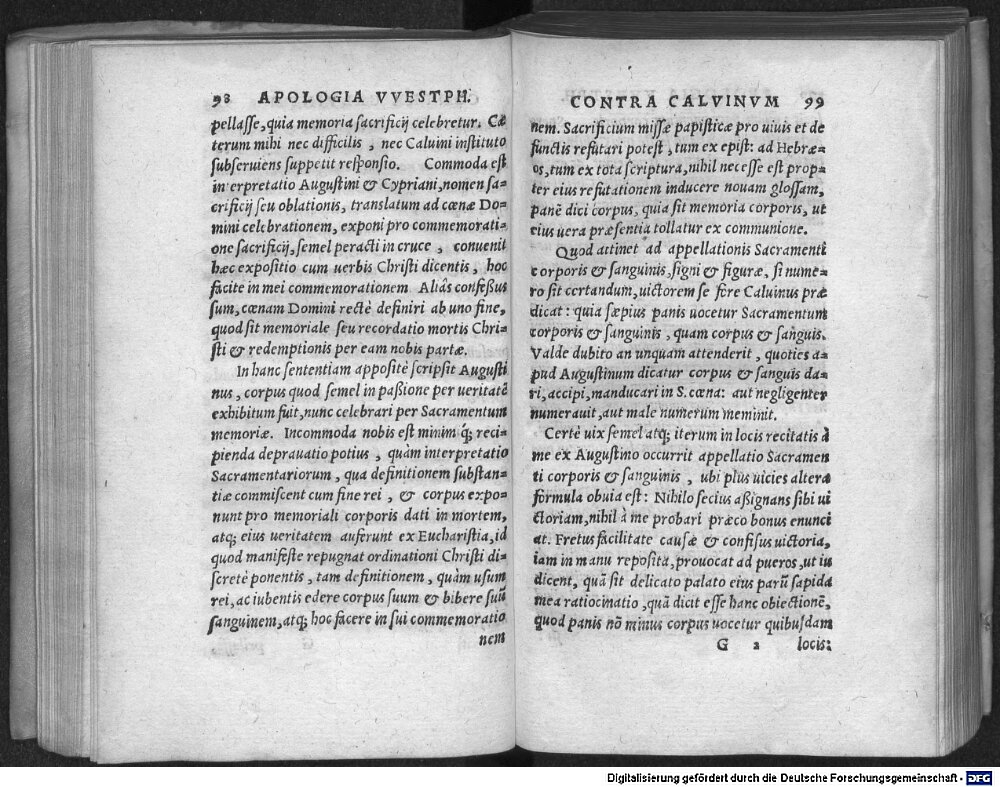 98 APOLOGIA VVESTPH.
pellasse, quia memoria sacrificij celebretur. Cæ
terum mihi nec difficilis, nec Caluini instituto
subseruiens suppetit responsio. Commoda est
interpretatio Augustini & Cypriani, nomen sa=
crificij seu oblationis, translatum ad cœnæ Do=
mini celebrationem, exponi pro commemorati=
one sacrificij, semel peracti in cruce, conuenit
hæc expositio cum uerbis Christi dicentis, hoc
facite in mei commemorationem. Aliâs confessus
sum, cœnam Domini rectè definiri ab uno fine,
quod sit memoriale seu recordatio mortis Chri=
sti & redemptionis per eam nobis partæ.
In hanc sententiam appositè scripsit Augusti
nus, corpus quod semel in passione per ueritatē
exhibitum fuit, nunc celebrari per Sacramentum
memoriæ. Incommoda nobis est minimq́; reci=
pienda deprauatio potius, quàm interpretatio
Sacramentariorum, qua definitionem substan=
tiæ commiscent cum fine rei, & corpus expo=
nunt pro memoriali corporis dati in mortem,
atq; eius ueritatem auferunt ex Eucharistia, id
quod manifeste repugnat ordinationi Christi di=
scretè ponentis, tam definitionem, quàm usum
rei, ac iubentis edere corpus suum & bibere suū
sanguinem, atq; hoc facere in sui commemoratio
nem
CONTRA CALVINVM 99
nem. Sacrificium missæ papisticæ pro uiuis et de
functis refutari potest, tum ex epist: ad Hebræ=
os, tum ex tota scriptura, nihil necesse est prop=
ter eius refutationem inducere nouam glossam,
panē dici corpus, quia sit memoria corporis, ut
eius uera præsentia tollatur ex communione.
Quod attinet ad appellationis Sacramenti
corporis & sanguinis, signi & figuræ, si nume=
ro sit certandum, uictorem se fere Caluinus præ
dicat: quia sæpius panis uocetur Sacramentum
corporis & sanguinis, quam corpus & sanguis.
Valde dubito an unquam attenderit, quoties a=
pud Augustinum dicatur corpus & sanguis da=
ri, accipi, manducari in S. cœna: aut negligenter
numerauit, aut male numerum meminit.
Certè uix semel atq; iterum in locis recitatis à
me ex Augustino occurrit appellatio Sacramen
ti corporis & sanguinis, ubi plus uicies altera
formula obuia est: Nihilo secius assignans sibi ui
ctoriam, nihil à me probari præco bonus enunci
at. Fretus facilitate causæ & confisus uictoria,
iam in manu reposita, prouocat ad pueros, ut iu
dicent, quā sit delicato palato eius parū sapida
mea ratiocinatio, quā dicit esse hanc obiectionē,
quod panis nō minus corpus uocetur quibusdam
G 2 locis:
Digitalisierung gefördert durch die Deutsche Forschungsgemeinschaft - DFG